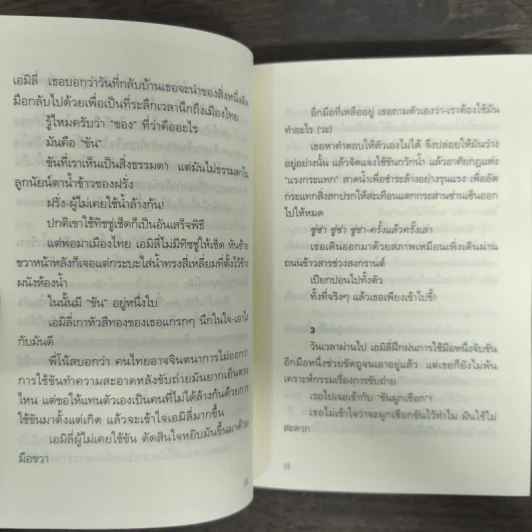 เอมิลี่ เธอบอกว่าวันที่กลับบ้านเธอจะนำของสิ่งหนึ่งติด
มือกลับไปด้วยเพื่อเป็นที่ระลึกเวลานึกถึงเมืองไทย
รู้ไหมครับว่า "ของ" ที่ว่าคืออะไร
มันคือ "ขัน"
ขันที่เราเห็นเป็นสิ่งธรรมดา แต่มันไม่ธรรมดาใน
ลูกนัยน์ตาน้ำข้าวของฝรั่ง
ฝรั่ง-ผู้ไม่เคยใช้น้ำล้างก้น!
ปกติเขาใช้ทิชชู่เช็ดก็เป็นอันเสร็จพิธี
แต่พอมาเมืองไทย เอมิลี่ไม่มีทิชชู่ให้เช็ด หันซ้าย
ขวาหน้าหลังก็เจอแต่กระบะใส่น้ำทรงสี่เหลี่ยมที่ตั้งใช้ข้าง
ผนังห้องน้ำ
ในนั้นมี "ขัน" อยู่หนึ่งใบ
เอมิลี่เกาหัวสีทองของเธอแกรกๆ นึกในใจ-เอาไง
กับมันดี
พี่โน้สบอกว่า คนไทยอาจจินตนาการไม่ออกว่า
การใช้ขันทำความสะอาดหลังขับถ่ายมันยากเย็นตรง
ไหน แต่ขอให้แทนตัวเองเป็นคนที่ไม่ได้ล้างก้นด้วยการ
ใช้ขันมาตั้งแต่เกิด แล้วจะเข้าใจเอมิลี่มากขึ้น
เอมิลี่ผู้ไม่เคยใช้ขัน ตัดสินใจหยิบมันขึ้นมาด้วย
มือขวา
อีกมือที่เหลืออยู่ เธอถามตัวเองว่า-เราต้องใช้มัน
ทำอะไร (วะ)
เธอหาคำตอบให้ตัวเองไม่ได้ จึงปล่อยให้มันว่าง
อยู่อย่างนั้น แล้วจัดแจงใช้ขันกวักน้ำ แล้วอาศัยกฎแห่ง
"แรงกระแทก" สาดน้ำเพื่อชำระล้างอย่างรุนแรง เพื่ออัด
กระแทกสิ่งสกปรกให้สะเทือนแตกกระสานซ่านเซ็นออก
ไปให้หมด
ซู่ซ่า ซู่ซ่า ซู่ซ่า-ครั้งแล้วครั้งเล่า
เธอเดินออกมาด้วยสภาพเหมือนเพิ่งเดินผ่าน
ถนนข้าวสารช่วงสงกรานต์
เปียกปอนไปทั้งตัว
ทั้งที่จริงๆ แล้วเธอเพียงเข้าไปขี้!
3
วันเวลาผ่านไป เอมิลี่ฝึกฝนการใช้มือหนึ่งจับขัน
อีกมือหนึ่งช่วยขัดถูจนเอาอยู่แล้ว แต่เธอก็ยังไม่พ้น
เคราะห์กรรมเรื่องการขับถ่าย
เธอไปเจอเข้ากับ "ขันผูกเชือก"!
เธอไม่เข้าใจว่าจะผูกเชือกขันไว้ทำไม มันใช้ไม่
สะดวก